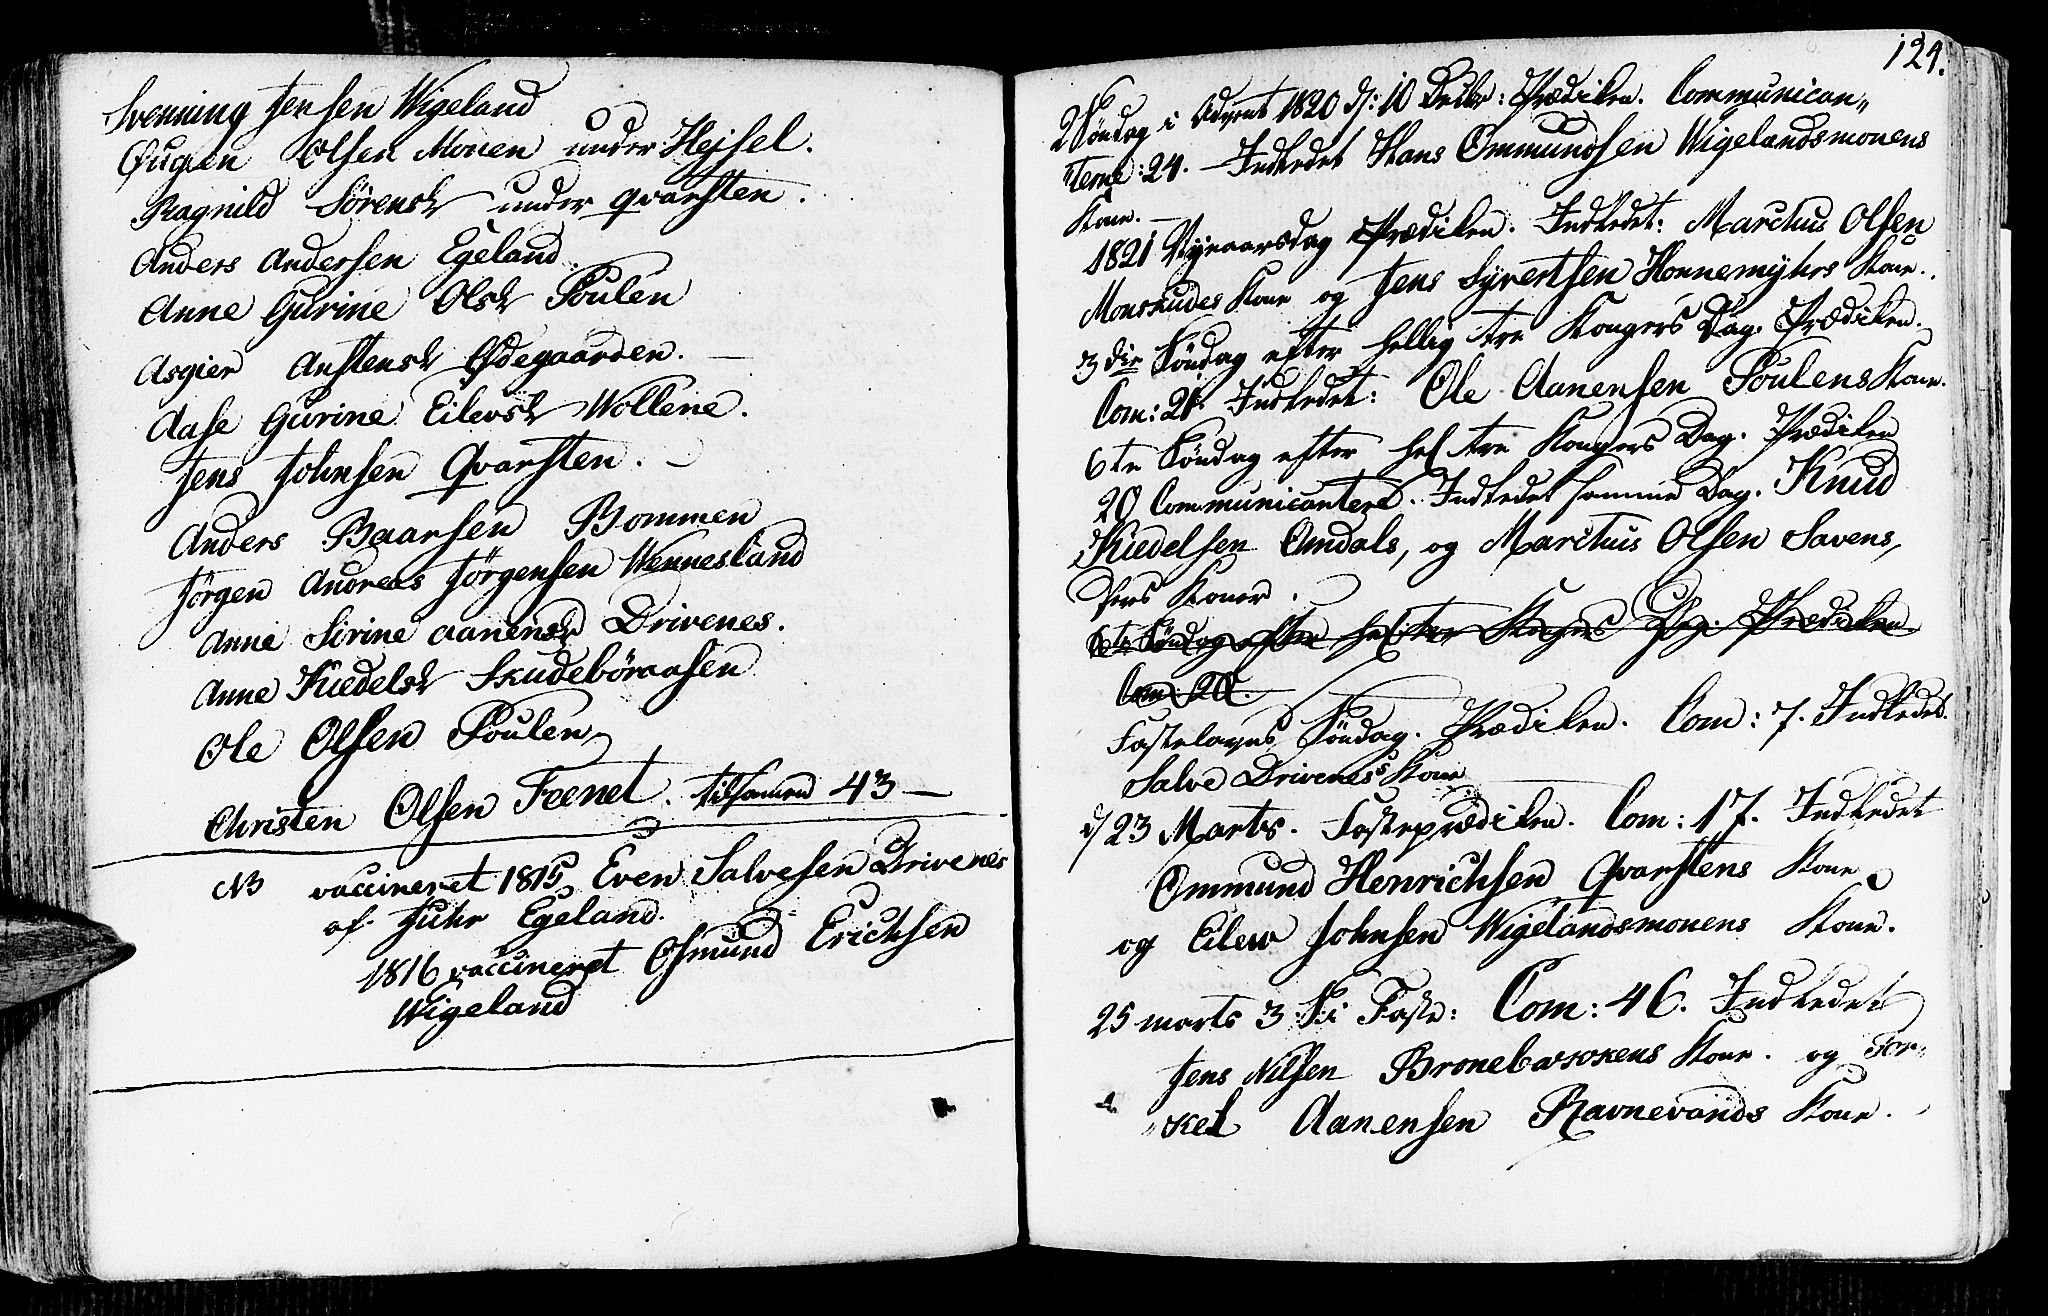 Svenning Jensen Wigeland
Øugen Olsen Monen under Hejsel.
Ragnild Sørensd under qvarsten.
Anders Andersen Egeland.
Anne Gurine Olsd Poulen
Asgier Anstensd Ødegaarden. —
Aase Gurine Eilevsd Wollene.
Jens Johnsen Qvarsten. —
Anders Baarsen Bommen
Jörgen Andreas Jörgensen Wennesland
Anne Sirine Aanensd Drivenes.
Anne Kiedelsd Skudeböraasen
Ole Olsen Poulen
Christen Olsen Feenet. tilsamen 43 —
NB vaccineret 1815 Even Salvesen Drivenes
af Juhr Egeland.
1816 vaccineret Osmund Erichsen
Wigeland
124.
2 Söndag i Advent 1820 d: 10 Decbr: Prædiken. Communican„
„terne: 24. — Indledet Hans Ommundsen Wigelandsmonens
Kone. —
1821 Nyeaarsdag Prædiken. Indledet: Marcius Olsen
Monskudes Kone og Jens Syvertsen Honnemyhrs Kone..
3die Söndag efter hellig tre Kongers Dag. Prædiken.
Com: 21. Indledet: Ole Aanensen Poulens Kone.
6te Söndag efter hel tre Kongers Dag. Prædiken
20 Communicantere. Indledet samme Dag. Knud
Kiedelsen Omdals, og Marcius Olsen Savens,
Koner.
6te Söndag efter hel: tre Kongers Dag. Prædiken.
Com: 20. —
Fastelavns Söndag. Prædiken. Com: 7. Indledet.
Salve Drivenes's Kone
d/ 23 Marts. Fasteprædiken. Com: 17. Indledet
Ommund Henrichsen Qvarstens Kone
og Eilew Johnsen Wigelandsmonens Kone.
25 marts 3 S: i Faste: Com: 46. Indledet
Jens Nilsen Bronebakkens Kone. og Tor„
„kel Aanensen Ravnevands Kone.